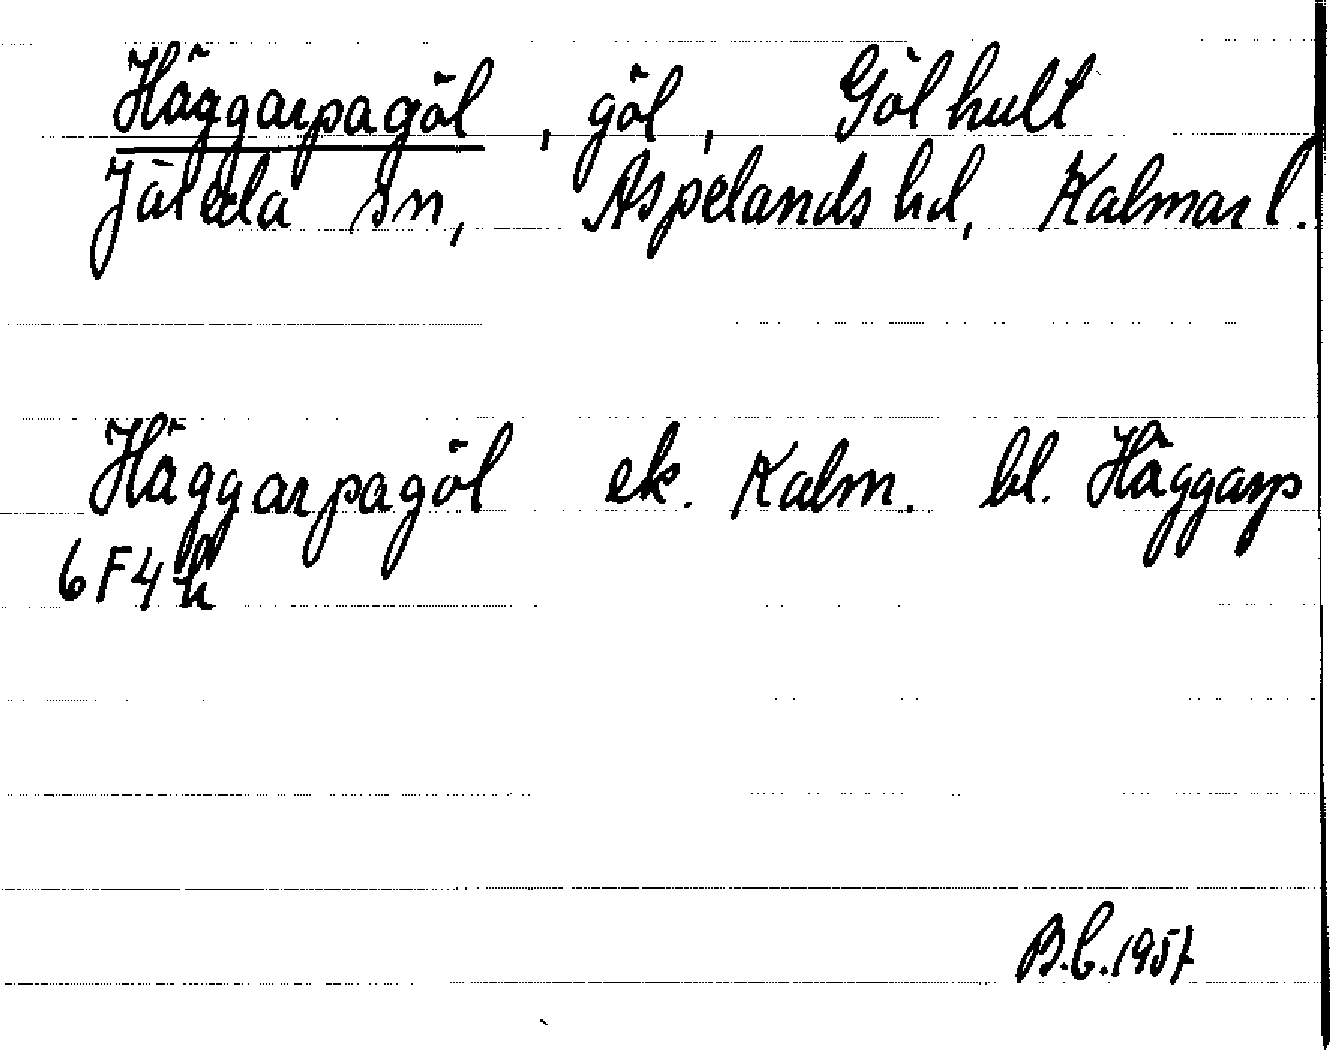 Häggarpagöl, göl, Gölhult
Järeda sn, Aspelands hd, Kalmar l.
Häggarpagöl ek. Kalm. bl. Häggarp
6F4h
B.b.1957